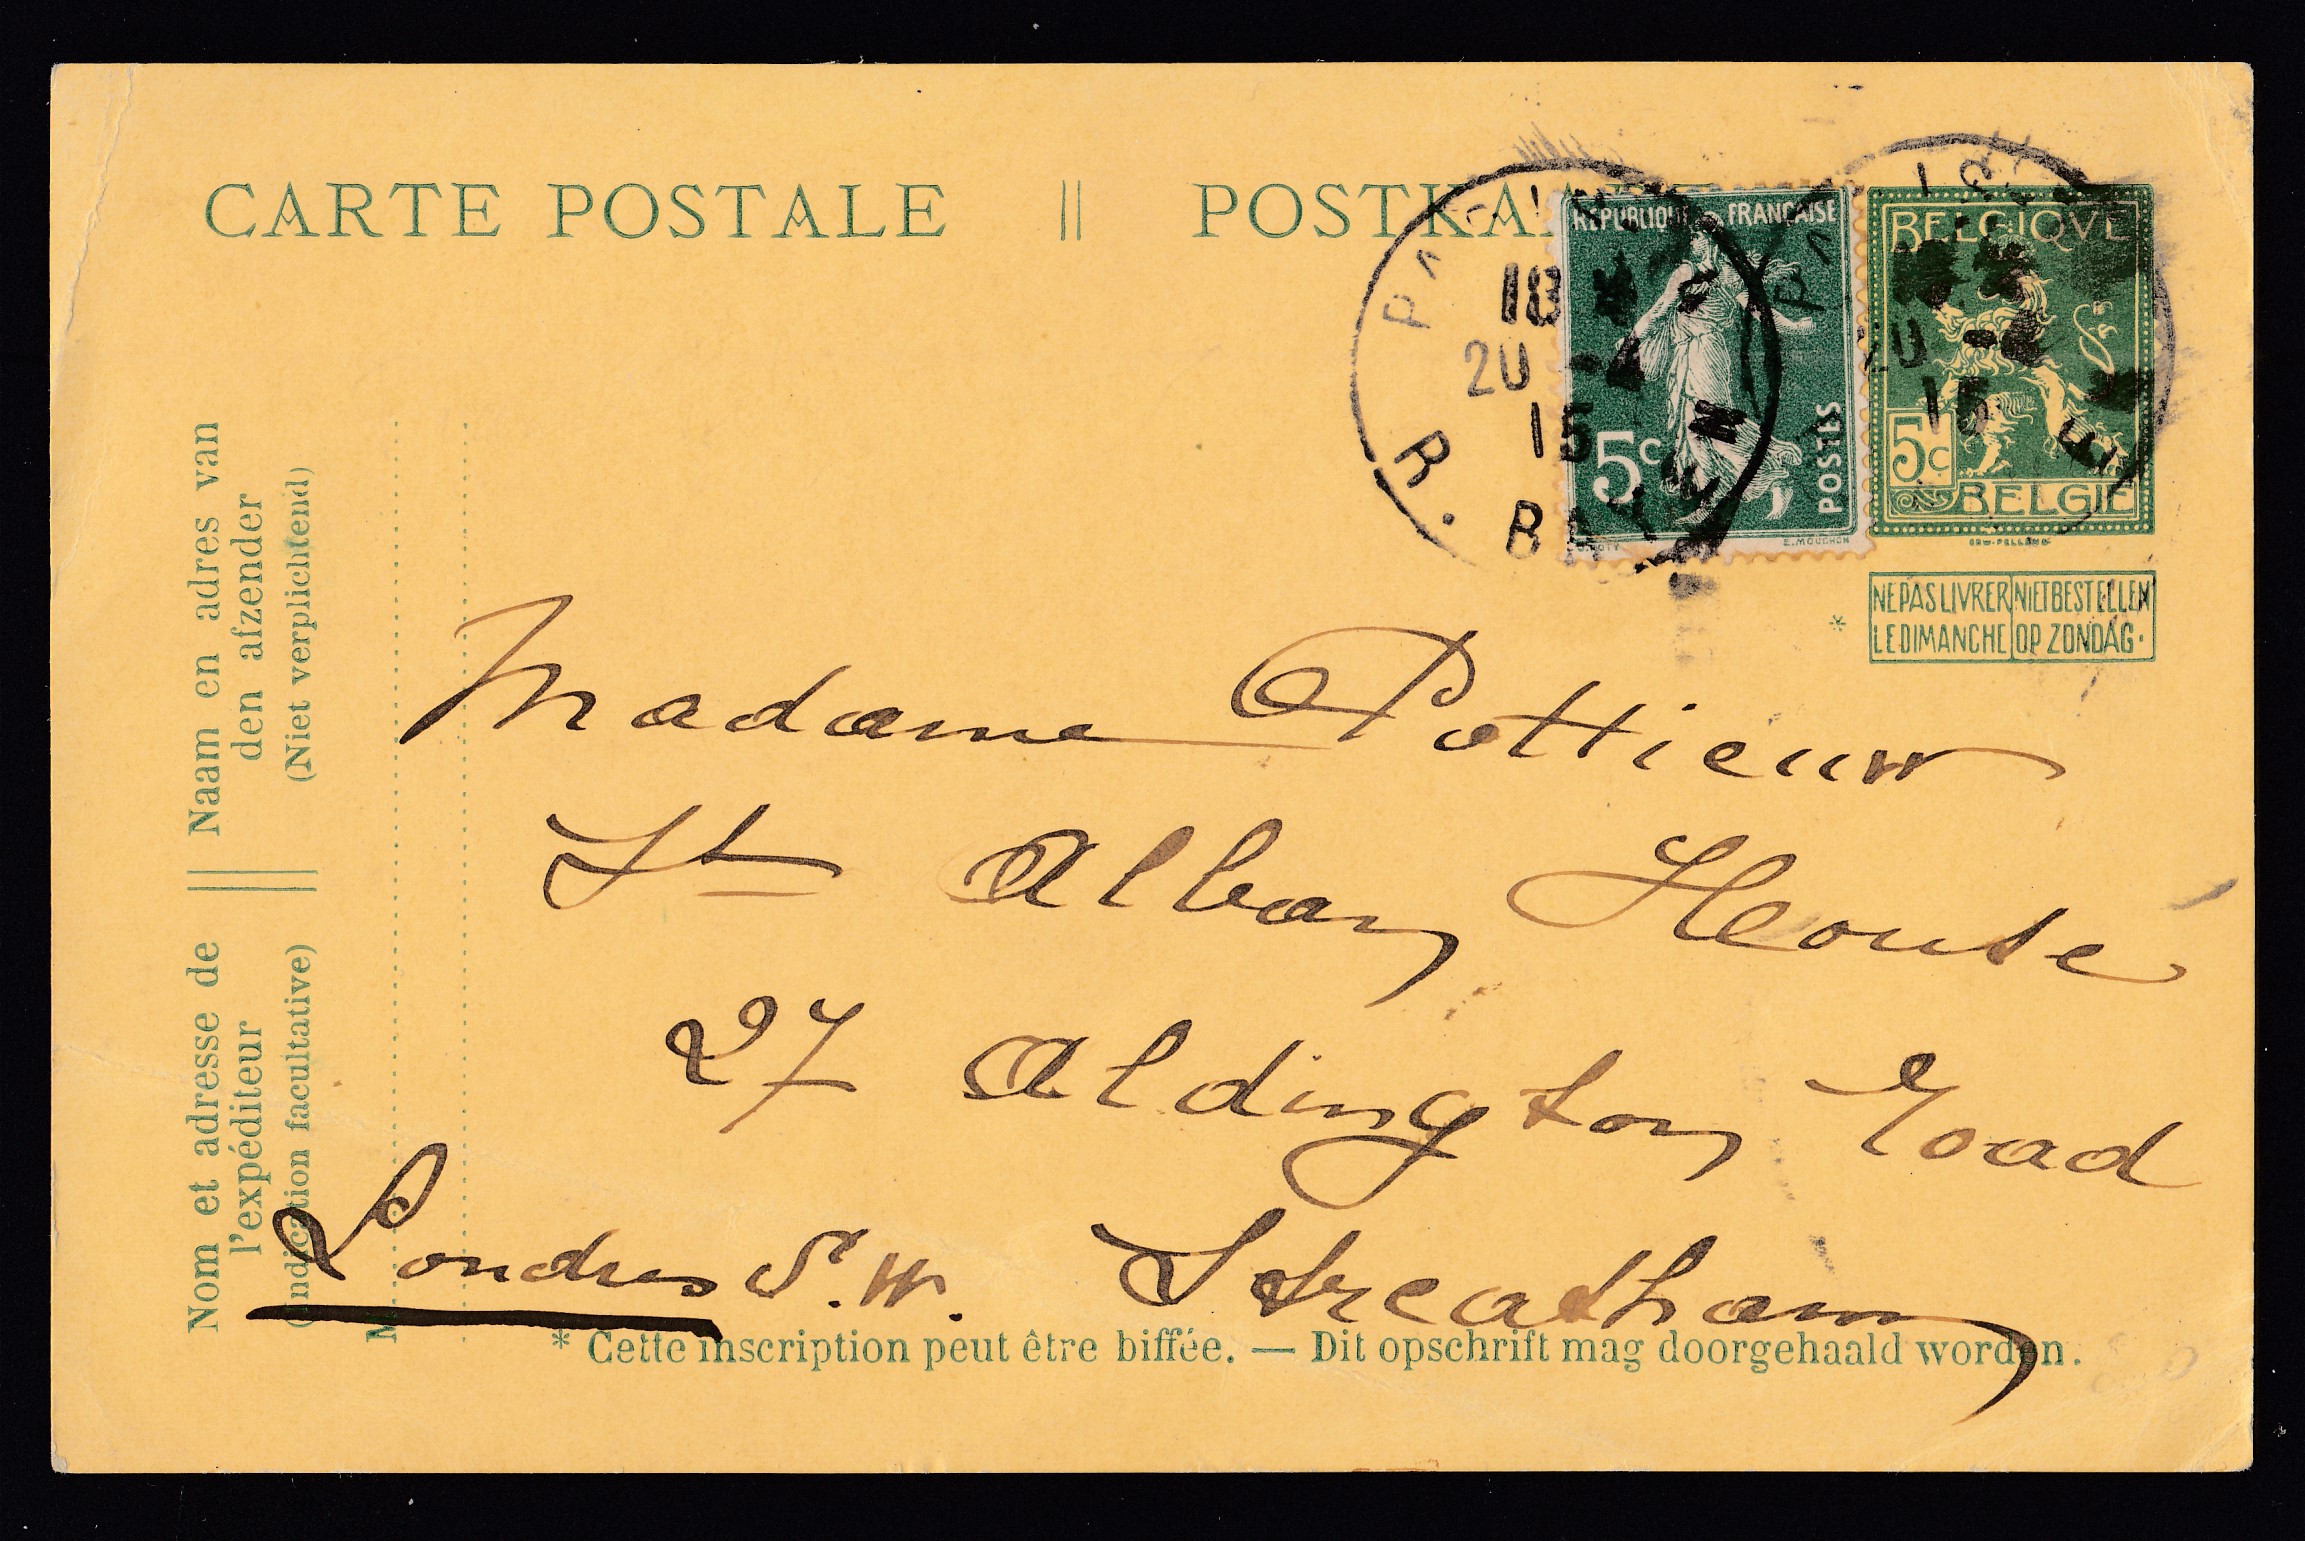 CARTE POSTALE || POSTKA
REPUBLIQUE FRANÇAISE
5c
POSTES
E. MOUCHON
BELGIQVE
5c
BELGIË
PA
18
20 -4
15
R.
20 -4
15
* NE PAS LIVRER LE DIMANCHE
NIET BESTELLEN OP ZONDAG.
Madame Pottieuw
St Alban House
27 Aldington road
Londres S.W. Streatham
Naam en adres van
den afzender
(Niet verplichtend)
Nom et adresse de
l'expéditeur
(Indication facultative)
M
* Cette inscription peut être biffée. — Dit opschrift mag doorgehaald worden.